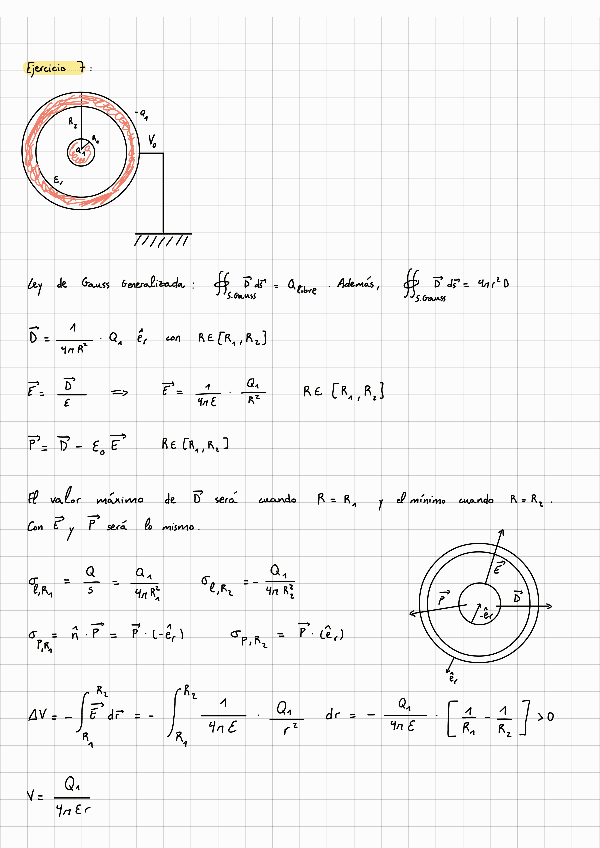 Ejercicio 7:
-Q₁
R₂
R₁
Q₁
V₀
εᵣ
Ley de Gauss Generalizada: ∯_S.Gauss D⃗ ds⃗ = Q_libre . Además, ∯_S.Gauss D⃗ ds⃗ = 4πr²D
D⃗ = 1/(4πR²) · Q₁ êᵣ con R∈[R₁,R₂]
E⃗ = D⃗/ε ⟹ E⃗ = 1/(4πε) · Q₁/R² R∈[R₁,R₂]
P⃗ = D⃗ - ε₀E⃗ R∈[R₁,R₂]
El valor máximo de D⃗ será cuando R = R₁ y el mínimo cuando R = R₂.
Con E⃗ y P⃗ será lo mismo.
E⃗
P⃗
D⃗
-êᵣ
êᵣ
σ_l,R₁ = Q/s = Q₁/(4πR₁²) σ_l,R₂ = - Q₁/(4πR₂²)
σ_P,R₁ = n̂·P⃗ = P⃗·(-êᵣ) σ_P,R₂ = P⃗·(êᵣ)
ΔV = -∫_R₁^R₂ E⃗ dr⃗ = -∫_R₁^R₂ 1/(4πε) · Q₁/r² dr = - Q₁/(4πε) · [1/R₁ - 1/R₂] > 0
V = Q₁/(4πεr)